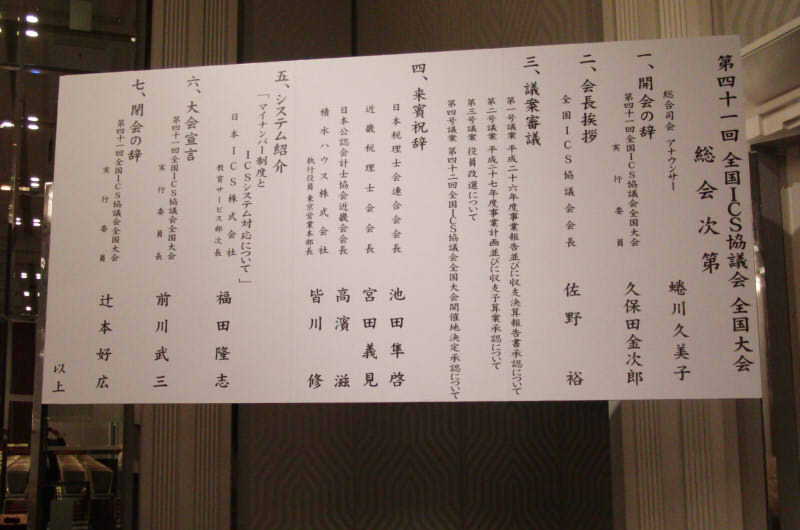 第四十一回 全国ICS協議会 全国大会
総会次第
総合司会 アナウンサー 蜷川久美子
一、開会の辞
第四十一回全国ICS協議会全国大会
実行委員 久保田金次郎
二、会長挨拶
全国ICS協議会会長 佐野裕
三、議案審議
第一号議案 平成二十六年度事業報告並びに収支決算報告書承認について
第二号議案 平成二十七年度事業計画並びに収支予算案承認について
第三号議案 役員改選について
第四号議案 第四十二回全国ICS協議会全国大会開催地決定承認について
四、来賓祝辞
日本税理士会連合会会長 池田隼啓
近畿税理士会会長 宮田義見
日本公認会計士協会近畿会会長 高濱滋
積水ハウス株式会社
執行役員 東京営業本部長 皆川修
五、システム紹介
「マイナンバー制度と
ICSシステム対応について」
日本ICS株式会社
教育サービス部次長 福田隆志
六、大会宣言
第四十一回全国ICS協議会全国大会
実行委員長 前川武三
七、閉会の辞
第四十一回全国ICS協議会全国大会
実行委員 辻本好広
以上